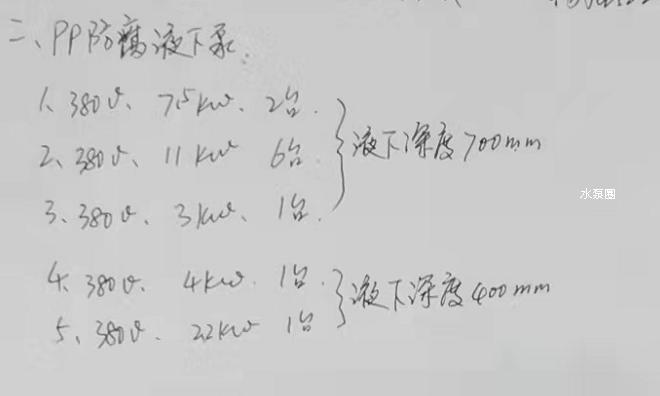 二、PP防腐液下泵.
1、380V、7.5KW、2台.
2、380V、11KW 6台.
3、380V、3KW、1台.
液下深度700mm
水泵圈
4、380V、4KW.1台.
5、380V、22KW 1台
液下深度400mm